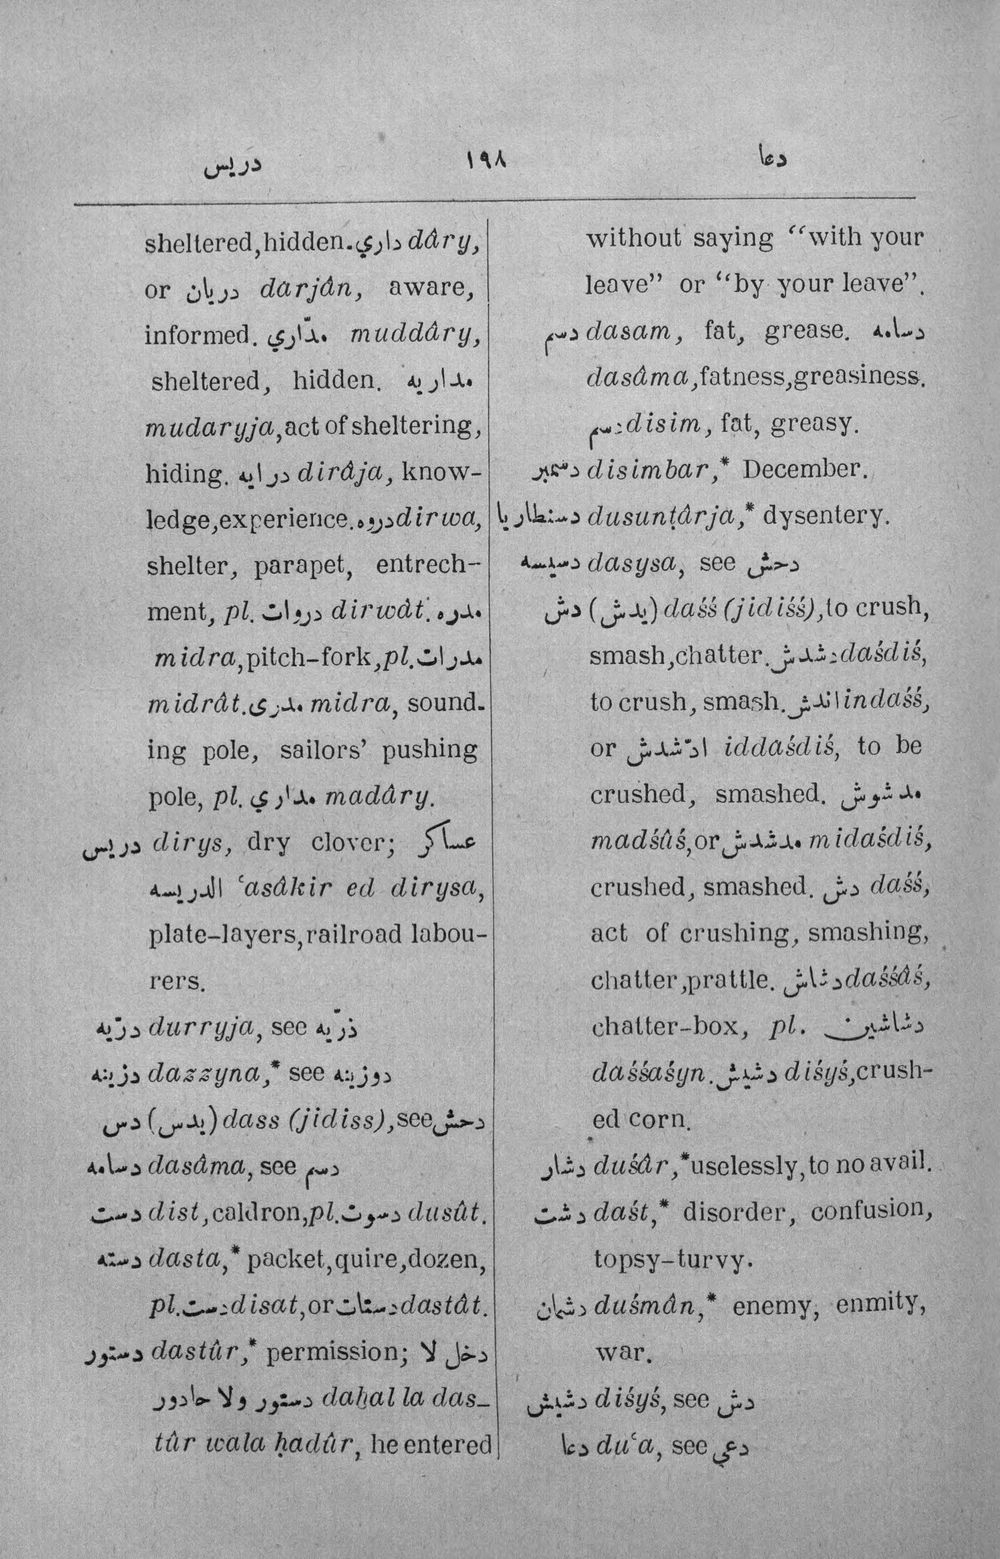 دريس ١٩٨ دعا
sheltered, hidden. داري dâry,
or دريان darjân, aware,
informed. مدّاري muddâry,
sheltered, hidden. مداريه
mudaryja, act of sheltering,
hiding. درايه dirâja, know-
ledge, experience. دروه dirwa,
shelter, parapet, entrech-
ment, pl. دروات dirwât. مدره
midra, pitch-fork, pl. مدرات
midrât. مدرى midra, sound-
ing pole, sailors’ pushing
pole, pl. مداري madâry.
دريس dirys, dry clover; عساكر
الدريسه ‘asâkir ed dirysa,
plate-layers, railroad labou-
rers.
درّيه durryja, see ذرّيه
دزينه dazzyna,* see دوزينه
دس (يدس) dass (jidiss), see دحش
دسامه dasâma, see دسم
دست dist, caldron, pl. دسوت dusût.
دسته dasta,* packet, quire, dozen,
pl. دست disat, or دستات dastât.
دستور dastûr,* permission; دخل لا
دستور ولا حادور daḫal la das-
tûr wala ḥadûr, he entered
without saying “with your
leave” or “by your leave”.
دسم dasam, fat, grease. دسامه
dasâma, fatness, greasiness.
دسم disim, fat, greasy.
دسمبر disimbar,* December.
دسنطاريا dusunṭârja,* dysentery.
دسيسه dasysa, see دحش
دش (يدش) daśś (jidiśś), to crush,
smash, chatter. دشدش daśdiś,
to crush, smash. اندش indaśś,
or ادّشدش iddaśdiś, to be
crushed, smashed. مدشوش
madśûś, or مدشدش midaśdiś,
crushed, smashed. دش daśś,
act of crushing, smashing,
chatter, prattle. دشاش daśśâś,
chatter-box, pl. دشاشين
daśśaśyn. دشيش diśyś, crush-
ed corn.
دشار duśâr,* uselessly, to no avail.
دشت daśt,* disorder, confusion,
topsy-turvy.
دشمان duśmân,* enemy, enmity,
war.
دشيش diśyś, see دش
دعا du‘a, see دعي